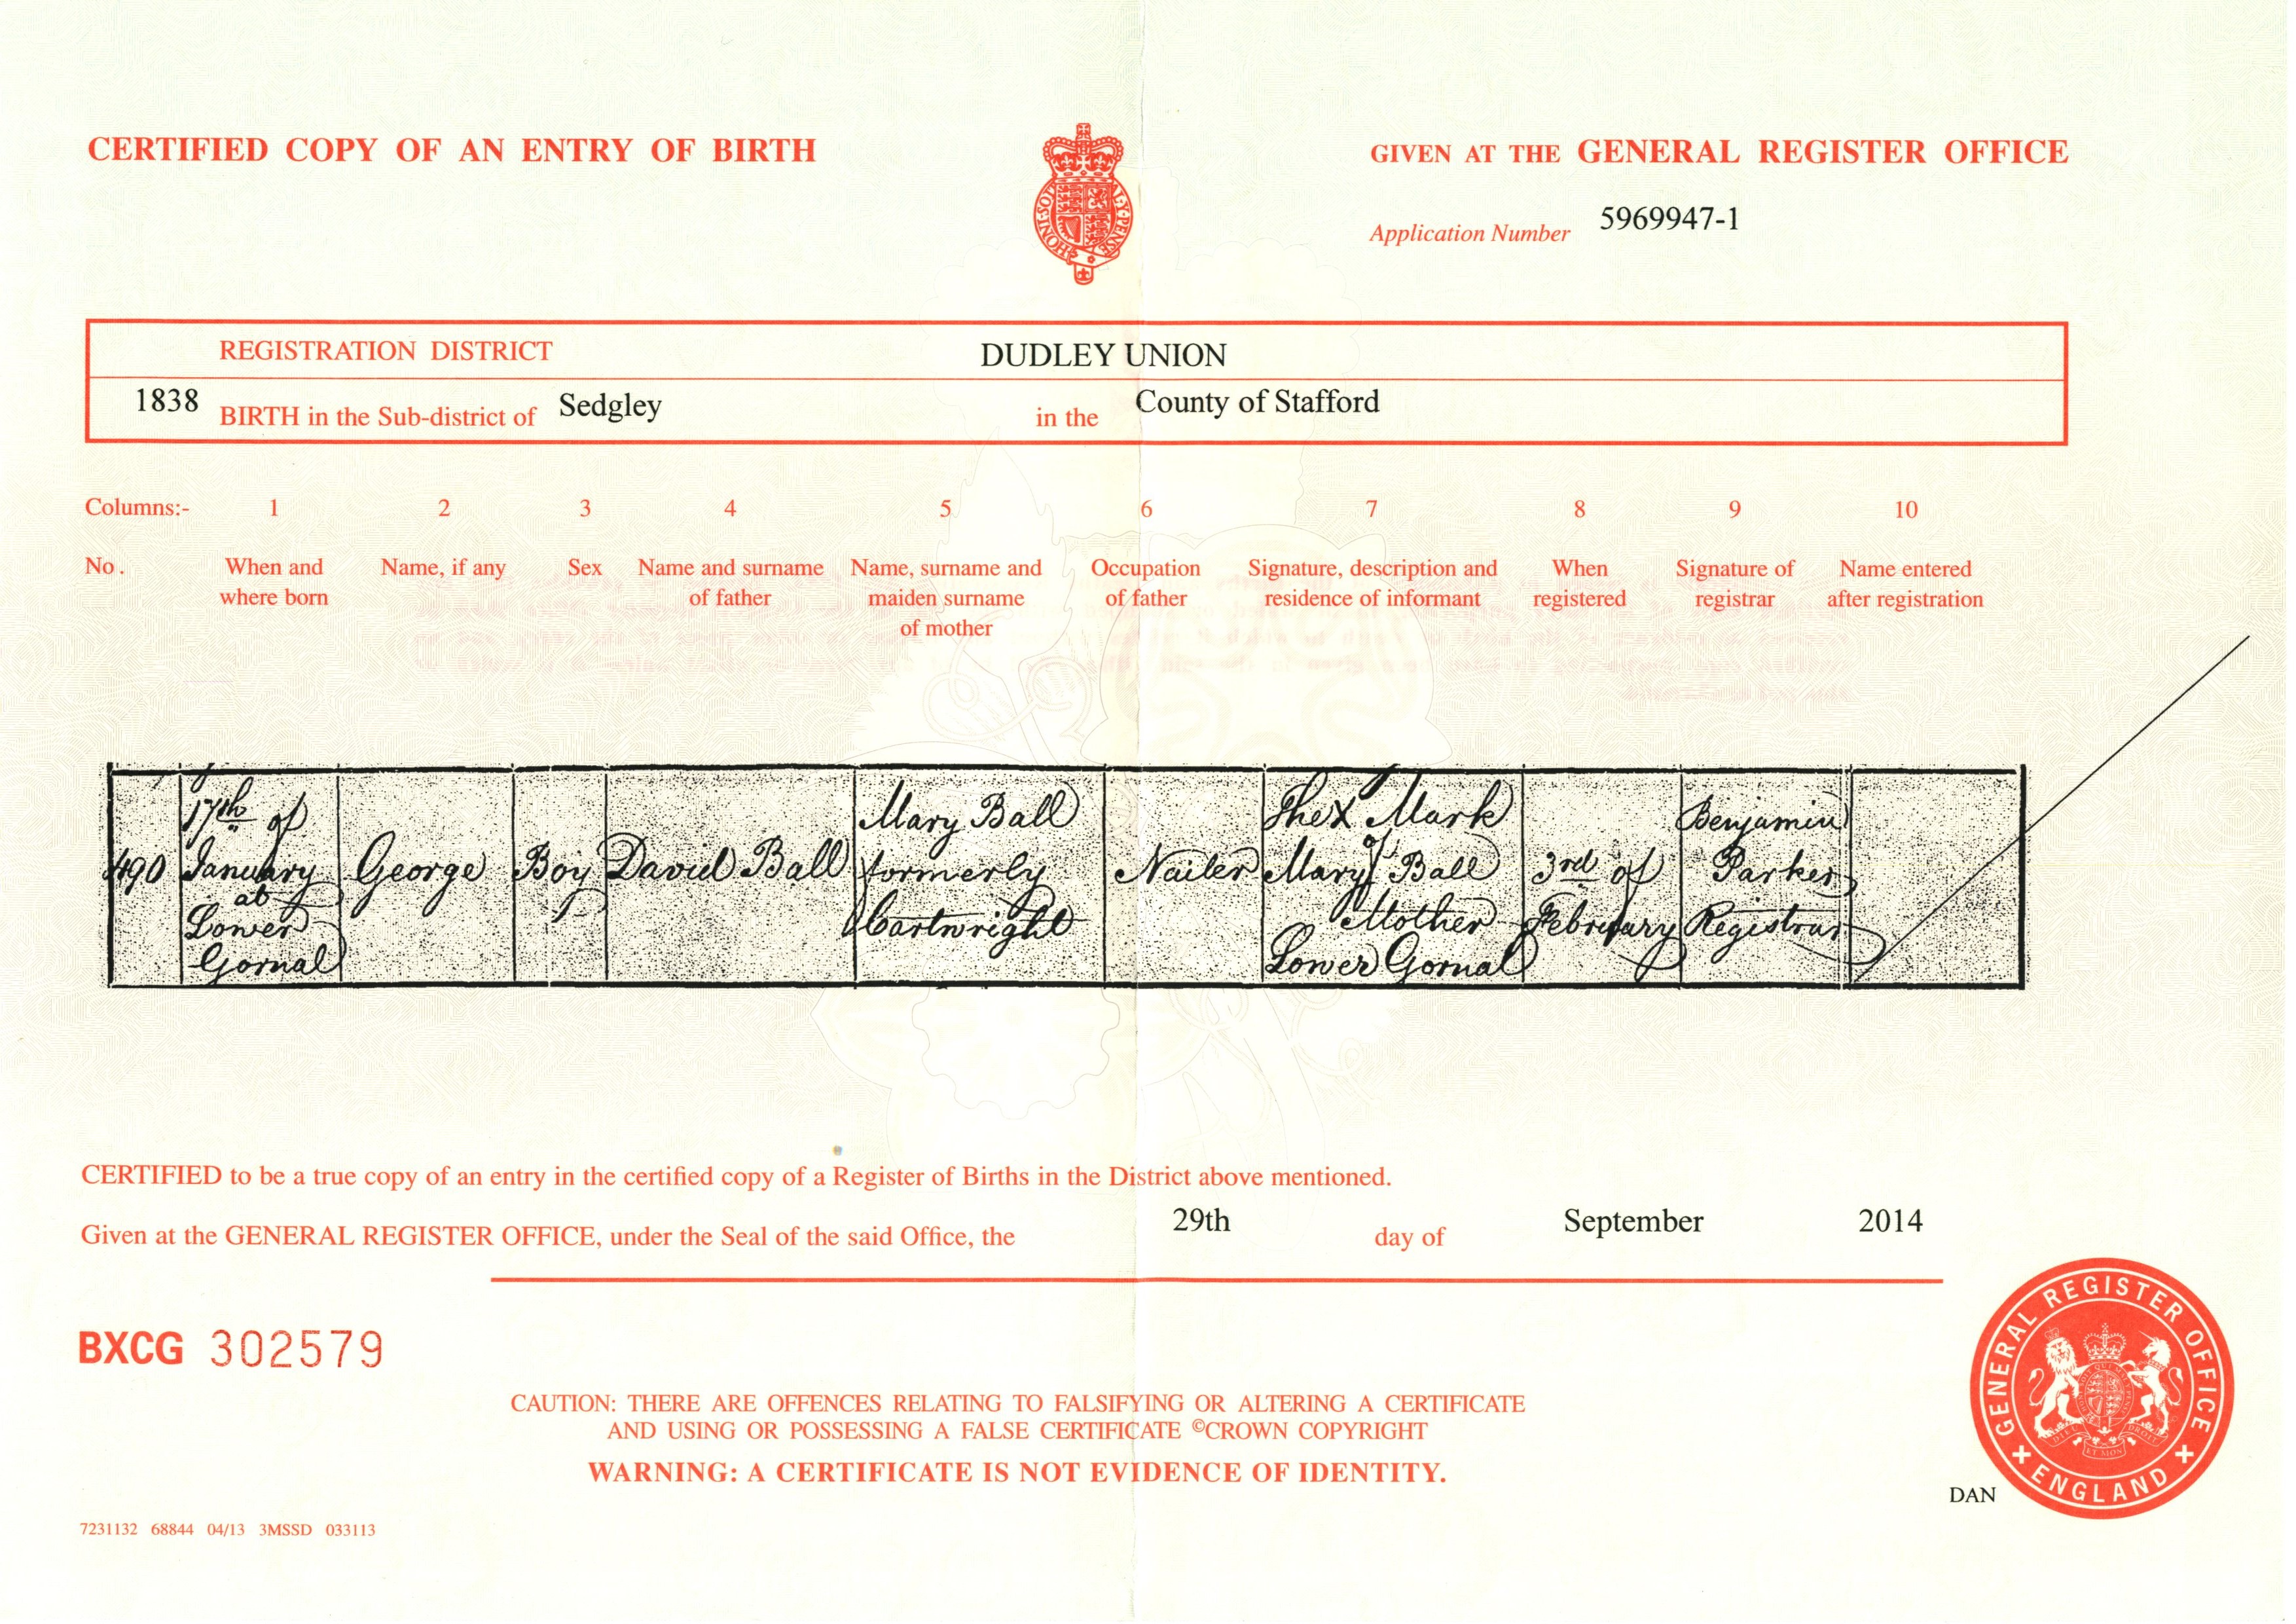 CERTIFIED COPY OF AN ENTRY OF BIRTH
GIVEN AT THE GENERAL REGISTER OFFICE
HONI·SOIT
AL·Y·PENSE
Application Number 5969947-1
REGISTRATION DISTRICT DUDLEY UNION
1838 BIRTH in the Sub-district of Sedgley in the County of Stafford
Columns:- 1 2 3 4 5 6 7 8 9 10
No. When and where born
Name, if any
Sex
Name and surname of father
Name, surname and maiden surname of mother
Occupation of father
Signature, description and residence of informant
When registered
Signature of registrar
Name entered after registration
490
17th of
January
at
Lower
Gornal
George
Boy
David Ball
Mary Ball
formerly
Cartwright
Nailer
The X Mark
of
Mary Ball
Mother
Lower Gornal
3rd of
February
Benjamin
Parker
Registrar
CERTIFIED to be a true copy of an entry in the certified copy of a Register of Births in the District above mentioned.
Given at the GENERAL REGISTER OFFICE, under the Seal of the said Office, the 29th day of September 2014
BXCG 302579
CAUTION: THERE ARE OFFENCES RELATING TO FALSIFYING OR ALTERING A CERTIFICATE
AND USING OR POSSESSING A FALSE CERTIFICATE ©CROWN COPYRIGHT
WARNING: A CERTIFICATE IS NOT EVIDENCE OF IDENTITY.
GENERAL REGISTER OFFICE
ENGLAND
DAN
7231132 68844 04/13 3MSSD 033113